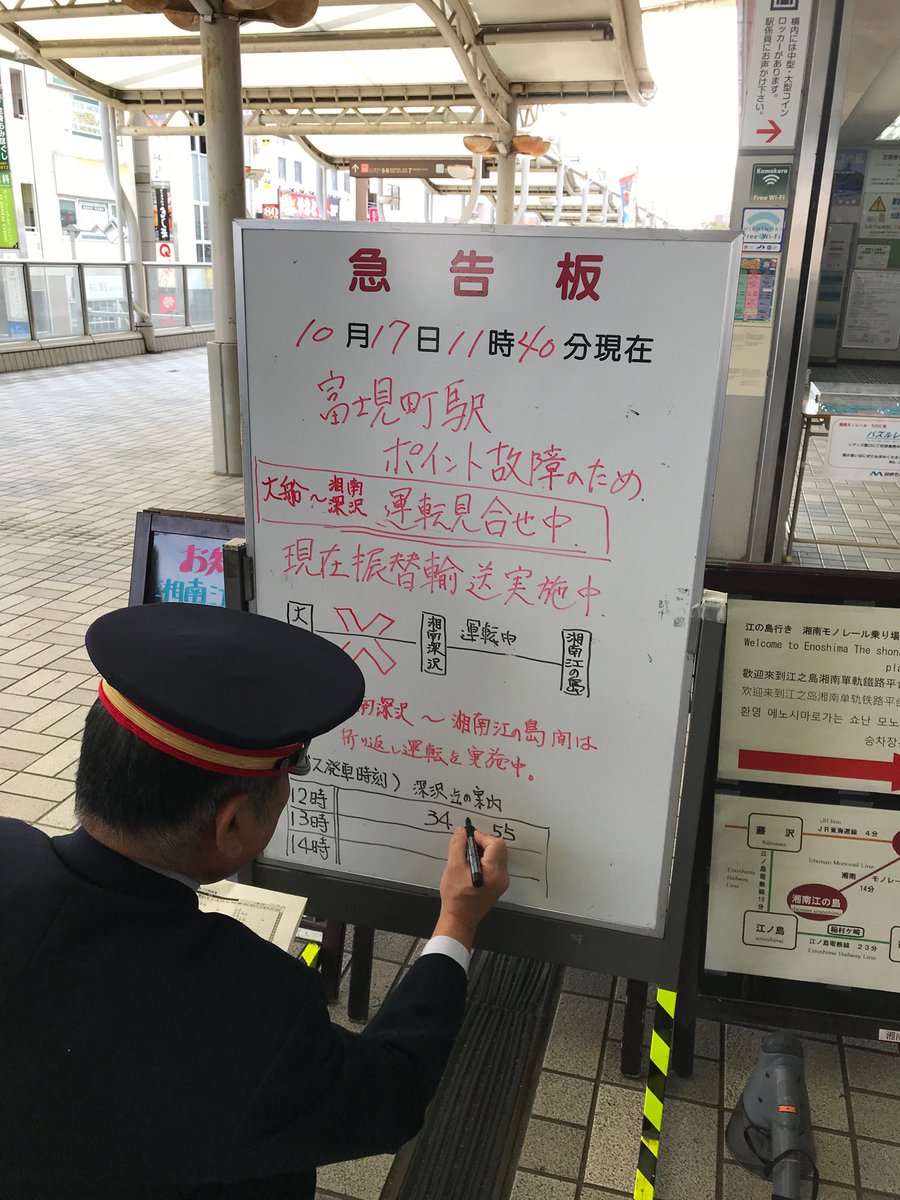 急告板
10月17日11時40分現在
富士見町駅
ポイント故障のため
大船〜湘南深沢 運転見合せ中.
現在振替輸送実施中.
大
湘南深沢
運転中
湘南江の島
南深沢〜湘南江の島間は
折り返し運転を実施中。
ス発車時刻)深沢近の案内
12時 34 55
13時
14時
構内には中型・大型コイン
ロッカーがあります。
駅係員にお声かけ下さい。
Kamakura
Free Wi-Fi
Free Wi-Fi
お知
湘南江
湘南モノレール
パズルレ
江の島行き 湘南モノレール乗り場
Welcome to Enoshima The shona
pla
歡迎來到江之島湘南單軌鐵路平台
欢迎来到江之岛湘南单轨铁路平台
환영 에노시마로가는 쇼난 모노
승차장
JR line
藤沢
fujisawa
JR東海道線 4分
Shonan Monorail Line
湘南 モノレール
14分
江ノ島電鉄線 10分
Enoshima
Railway Line
湘南江の島
Shonan enoshima
江ノ島
enoshima
稲村ケ崎
江ノ島電鉄線 23分
Enoshima Railway Line
湘南